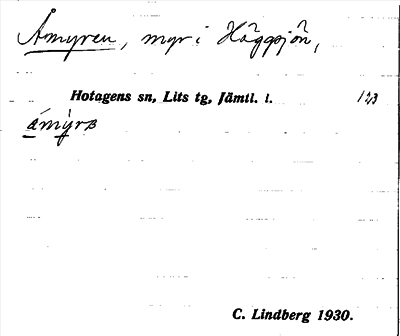 Åmyren, myr i Häggsjön,
Hotagens sn, Lits tg, Jämtl. l. 123
åmyrɐ
C. Lindberg 1930.